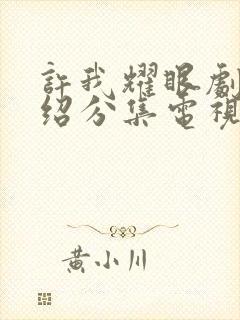 許我耀眼劇
紹分集電視
黃小川